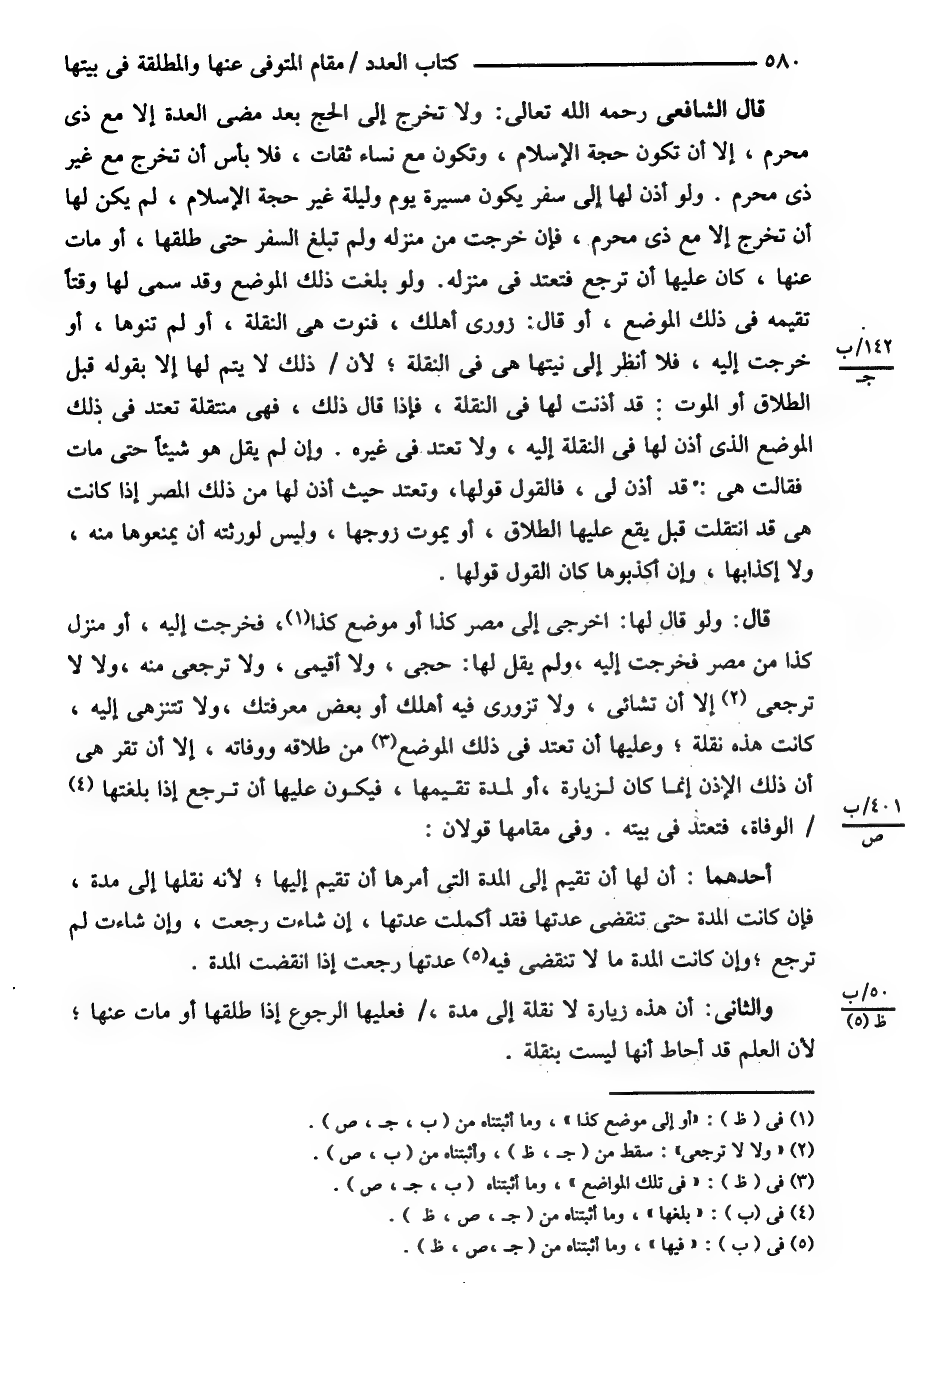 ٥٨٠ ــــــــــــــــــــ كتاب العدد / مقام المتوفى عنها والمطلقة فى بيتها
قال الشافعى رحمه الله تعالى: ولا تخرج إلى الحج بعد مضى العدة إلا مع ذى
محرم ، إلا أن تكون حجة الإسلام ، وتكون مع نساء ثقات ، فلا بأس أن تخرج مع غير
ذى محرم . ولو أذن لها إلى سفر يكون مسيرة يوم وليلة غير حجة الإسلام ، لم يكن لها
أن تخرج إلا مع ذى محرم ، فإن خرجت من منزله ولم تبلغ السفر حتى طلقها ، أو مات
عنها ، كان عليها أن ترجع فتعتد فى منزله. ولو بلغت ذلك الموضع وقد سمى لها وقتاً
تقيمه فى ذلك الموضع ، أو قال: زورى أهلك ، فنوت هى النقلة ، أو لم تنوها ، أو
خرجت إليه ، فلا أنظر إلى نيتها هى فى النقلة ؛ لأن / ذلك لا يتم لها إلا بقوله قبل
١٤٢/ب
جـ
الطلاق أو الموت : قد أذنت لها فى النقلة ، فإذا قال ذلك ، فهى منتقلة تعتد فى ذلك
الموضع الذى أذن لها فى النقلة إليه ، ولا تعتد فى غيره . وإن لم يقل هو شيئاً حتى مات
فقالت هى : قد أذن لى ، فالقول قولها، وتعتد حيث أذن لها من ذلك المصر إذا كانت
هى قد انتقلت قبل يقع عليها الطلاق ، أو يموت زوجها ، وليس لورثته أن يمنعوها منه ،
ولا إكذابها ، وإن أكذبوها كان القول قولها .
قال: ولو قال لها: اخرجى إلى مصر كذا أو موضع كذا(١)، فخرجت إليه ، أو منزل
كذا من مصر فخرجت إليه ،ولم يقل لها: حجى ، ولا أقيمى ، ولا ترجعى منه ،ولا لا
ترجعى (٢) إلا أن تشائى ، ولا تزورى فيه أهلك أو بعض معرفتك ،ولا تتنزهى إليه ،
كانت هذه نقلة ؛ وعليها أن تعتد فى ذلك الموضع(٣) من طلاقه ووفاته ، إلا أن تقر هى
أن ذلك الإذن إنمـا كان لـزيارة ،أو لمـدة تقـيمها ، فيكـون عليها أن تـرجع إذا بلغتها (٤)
/ الوفاة، فتعتد فى بيته . وفى مقامها قولان :
٤٠١/ب
ص
أحدهما : أن لها أن تقيم إلى المدة التى أمرها أن تقيم إليها ؛ لأنه نقلها إلى مدة ،
فإن كانت المدة حتى تنقضى عدتها فقد أكملت عدتها ، إن شاءت رجعت ، وإن شاءت لم
ترجع ؛وإن كانت المدة ما لا تنقضى فيه(٥) عدتها رجعت إذا انقضت المدة .
والثانى: أن هذه زيارة لا نقلة إلى مدة ،/ فعليها الرجوع إذا طلقها أو مات عنها ؛
٥٠/ب
ظ (٥)
لأن العلم قد أحاط أنها ليست بنقلة .
(١) فى ( ظ ) : «أو إلى موضع كذا» ، وما أثبتناه من ( ب ، جـ ، ص ) .
(٢) « ولا لا ترجعى» : سقط من ( جـ ، ظ ) ، وأثبتناه من ( ب ، ص ) .
(٣) فى ( ظ ) : « فى تلك المواضع » ، وما أثبتناه ( ب ، جـ ، ص ) .
(٤) فى (ب ) : « بلغها » ، وما أثبتناه من ( جـ ، ص ، ظ ) .
(٥) فى ( ب ) : « فيها » ، وما أثبتناه من ( جـ ،ص ، ظ ) .